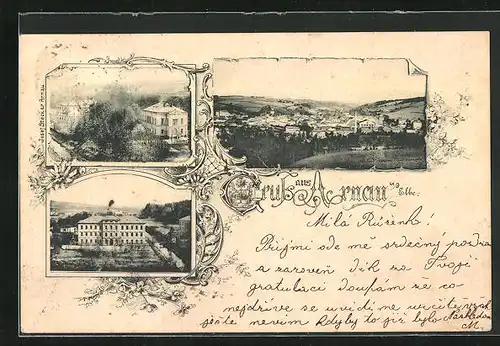 Gruss aus Arnau a/Elbe.
Milá Růženko!
Přijmi ode mě srdečný pozdra
a zároveň dík za Tvoji
gratulaci doufám že co
nejdříve se uvidíme určitě
ještě nevím kdyby to již bylo
M.